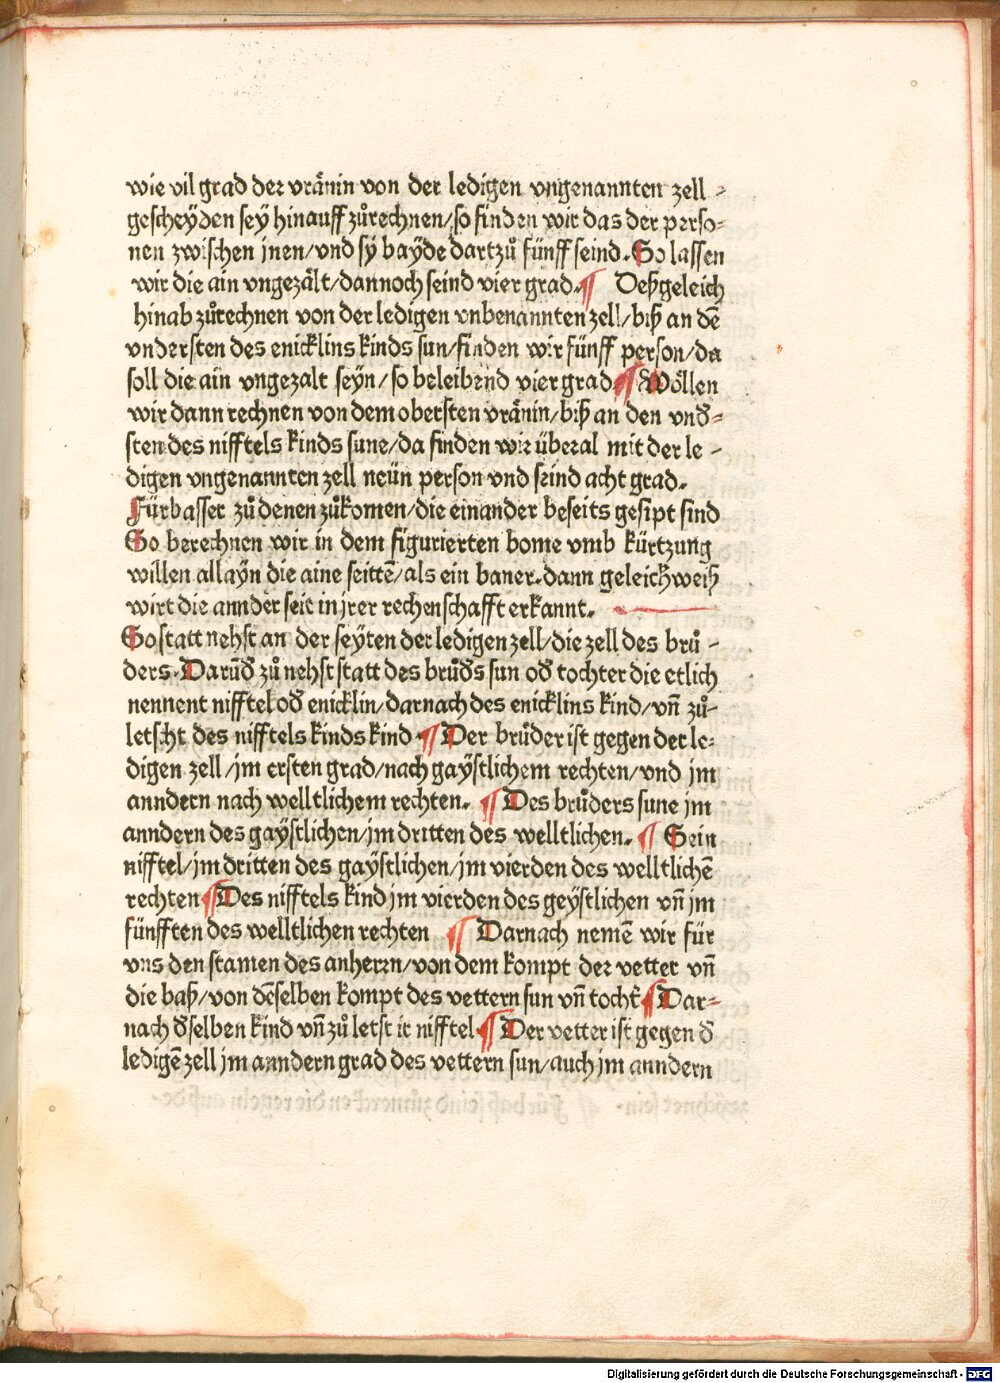 wie vil grad der vränin von der ledigen vngenannten zell -
gescheyden sey hinauff zůrechnen/so finden wir das der perso-
nen zwischen jnen/vnd sy bayde dartzů fünff seind. So lassen
wir die ain vngezält/dannoch seind vier grad. ¶ Deßgeleich
hinab zůrechnen von der ledigen vnbenannten zell/biß an dē
vndersten des enicklins kinds sun/finden wir fünff person/da
soll die ain vngezalt seyn/so beleibend vier grad ¶ Wöllen
wir dann rechnen von dem obersten vränin/biß an den vnd̄-
sten des nifftels kinds sune/da finden wir überal mit der le-
digen vngenannten zell neün person vnd seind acht grad.
Fürbasser zů denen zůkomen/die einander beseits gesipt sind
So berechnen wir in dem figurierten bome vmb kürtzung
willen allayn die aine seittē/als ein baner. dann geleich weiß
wirt die annder seit in jrer rechenschafft erkannt.
So statt nehst an der seyten der ledigen zell/die zell des brů-
ders. Darūd̄ zů nehst statt des brůd̄s sun od̄ tochter die etlich
nennent nifftel od̄ enicklin/darnach des enicklins kind/vn̄ zů-
letscht des nifftels kinds kind ¶ Der brůder ist gegen der le-
digen zell/jm ersten grad/nach gaystlichem rechten/vnd jm
anndern nach welltlichem rechten. ¶ Des brůders sune jm
anndern des gaystlichen/jm dritten des welltlichen. ¶ Sein
nifftel/jm dritten des gaystlichen/jm vierden des welltlichē
rechten ¶ Des nifftels kind jm vierden des geystlichen vn̄ jm
fünfften des welltlichen rechten ¶ Darnach nemē wir für
vns den stamen des anherrn/von dem kompt der vetter vn̄
die baß/von dēselben kompt des vettern sun vn̄ tocht̄ ¶ Dar-
nach d̄selben kind vn̄ zů letst ir nifftel ¶ Der vetter ist gegen d̄
ledigē zell jm anndern grad des vettern sun/auch jm anndern
Digitalisierung gefördert durch die Deutsche Forschungsgemeinschaft - DFG